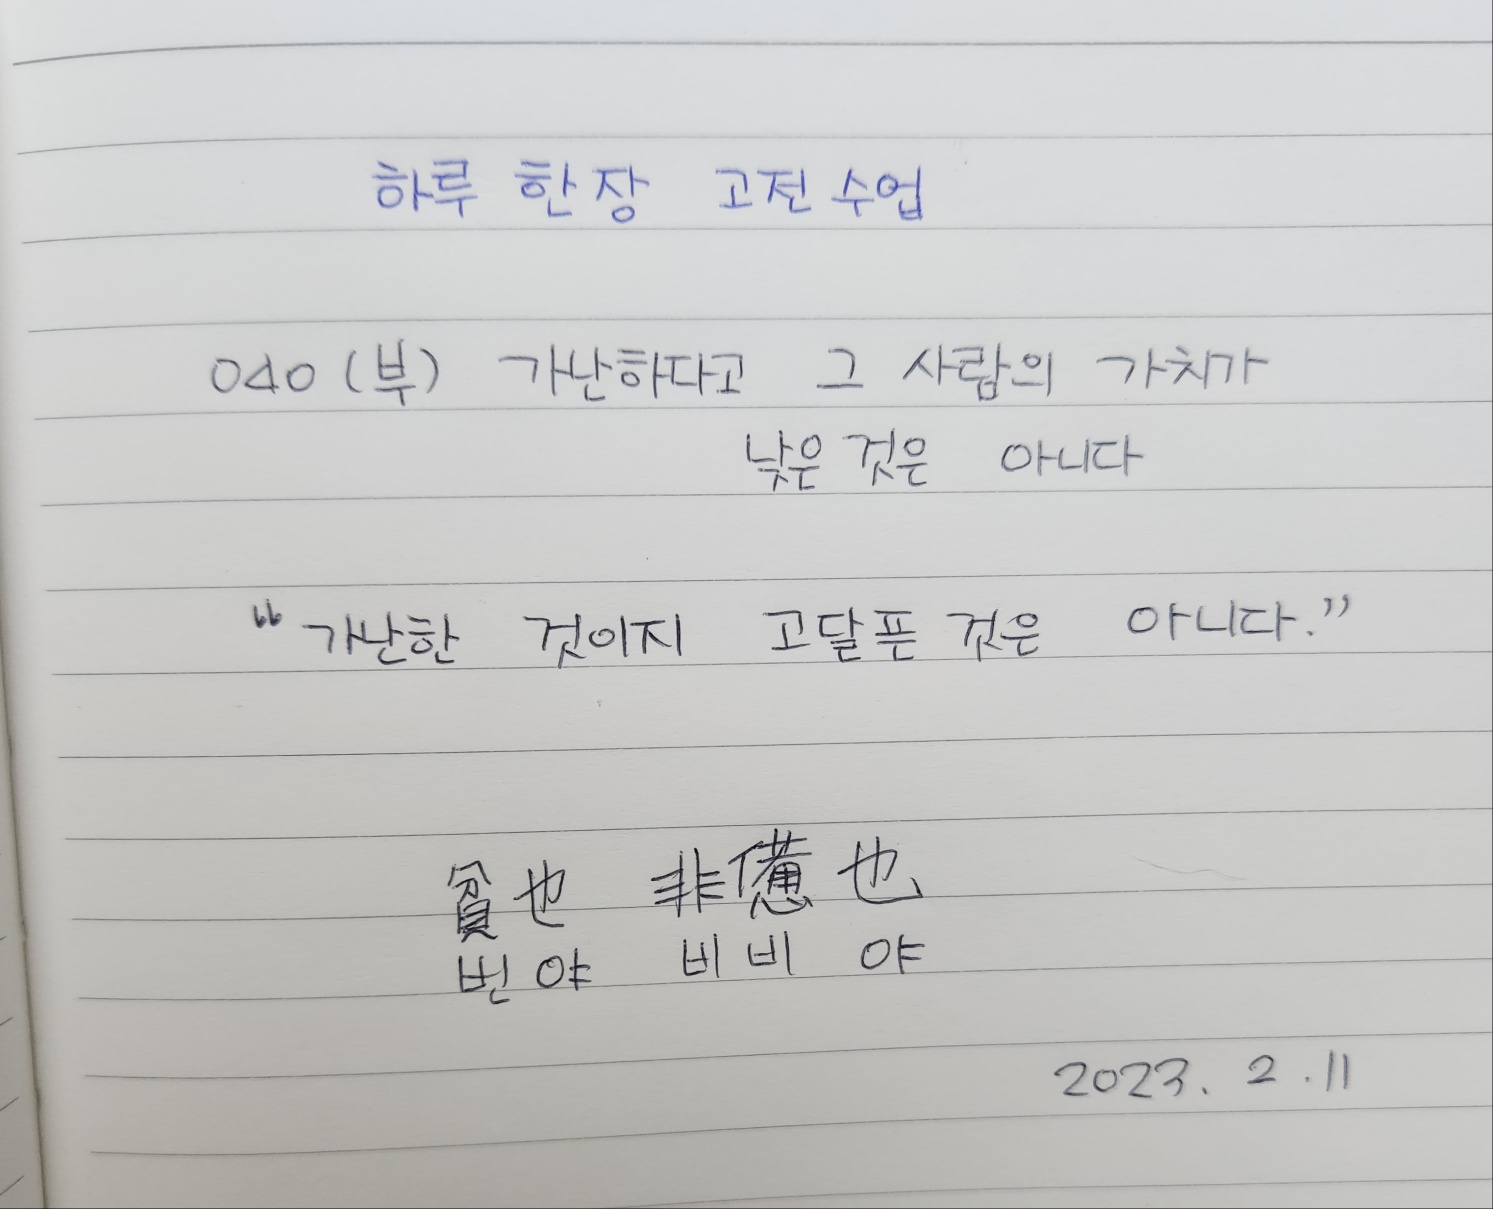 하루 한 장 고전 수업
040 (부) 가난하다고 그 사람의 가치가
낮은 것은 아니다
“가난한 것이지 고달픈 것은 아니다.”
貧也 非憊也
빈야 비비 야
2023. 2. 11